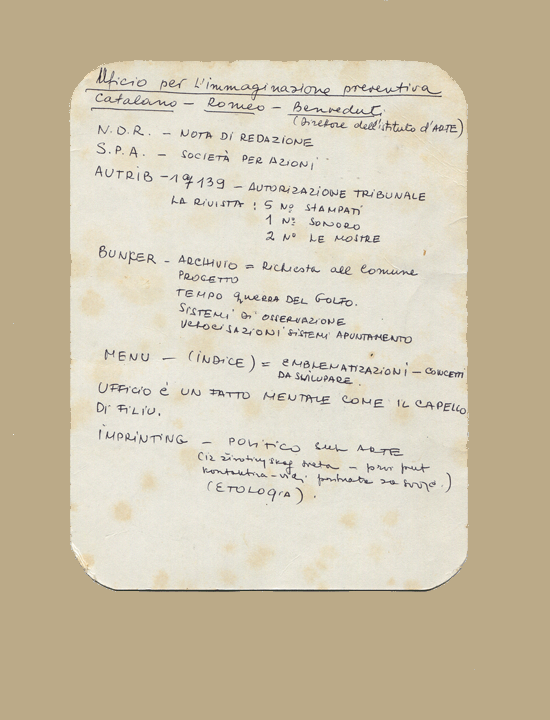 Uficio per l'immaginazione preventiva
Catalano – Romeo – Benvedut.
(Diretore dell'istituto d'ARTE)
N.D.R. – NOTA DI REDAZIONE
S.P.A. – SOCIETÀ PER AZIONI
AUTRIB – 139 – AUTORIZAZIONE TRIBUNALE
LA RIVISTA : 5 No STAMPATI
1 No SONORO
2 No LE MOSTRE
BUNKER – ARCHIVIO = Richiesta all comune
PROGETTO
TEMPO guerra DEL GOLFO.
SISTEMI DI OSSERVAZIONE
VELOCISAZIONI SISTEMI APUNTAMENTO
MENU – (INDICE) = EMBLEMATIZAZIONI – CONCETTI
DA SVILUPARE.
UFFICIO È UN FATTO MENTALE COME IL CAPELLO
DI FILIU.
IMPRINTING – POLITICO SULL ARTE
(iz životinjskog sveta – prvi put
kontaktira – vidi za svoje.)
(ETOLOGIA).